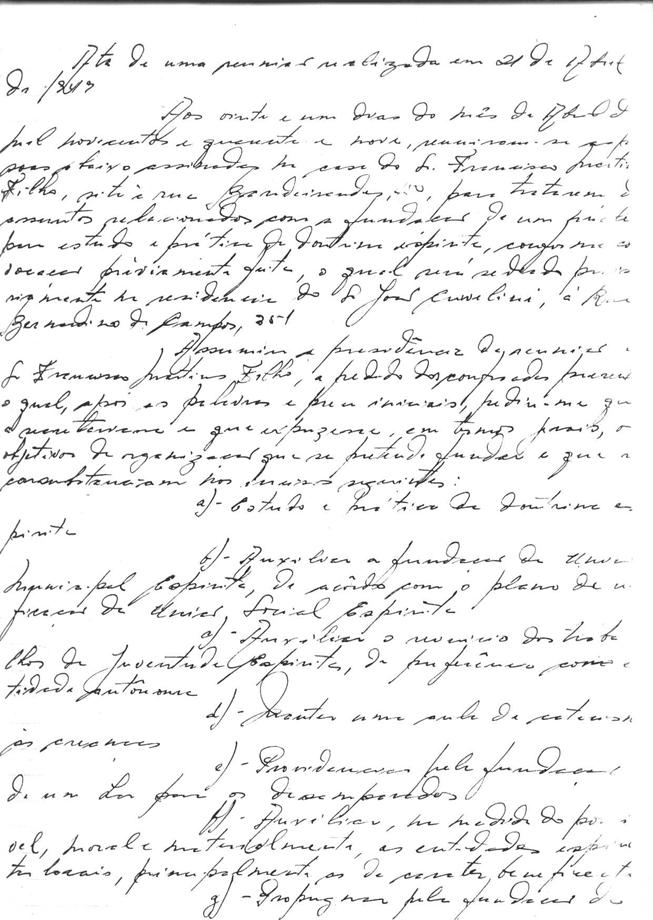 Ata de uma reunião realizada em 21 de Abril
de 1949
Aos vinte e um dias do mês de Abril d
mil novecentos e quarenta e nove, reuniram-se as p
soas abaixo assinadas na casa do Sr. Francisco Martin
Filho, sita à rua Bandeirantes, para tratarem d
assuntos relacionados com a fundação de um
para estudo e prática da doutrina espirita, conforme co
vocação préviamente feita, o qual será sediado
na residencia do Sr José, à Rua
Bernardino de Campos, 351
Assumiu a presidência da reunião o
Sr Francisco Martins Filho, a pedido dos confrades
o qual, após as palavras e prece iniciais, pediu-me qu
a secretariasse e que expuzesse, em termos gerais, o
objetivos da organização que se pretende fundar e que
consubstanciam nos incisos seguintes:
a) - Estudo e Prática da doutrina es
pirita
b) - Auxiliar a fundação da União
Municipal Espirita, de acôrdo com o plano de u
ficação da União Social Espirita
c) - Auxiliar o reinicio dos traba
lhos da Juventude Espirita, de preferência como e
tidade autônoma
d) - Manter uma aula de catecism
às creanças
e) - Providenciar pela fundação
de um Lar para os desamparados
f) - Auxiliar, na medida do possi
vel, moral e materialmente, as entidades espiri
tas locais, principalmente as de carater beneficente
g) - Propugnar pela fundação de